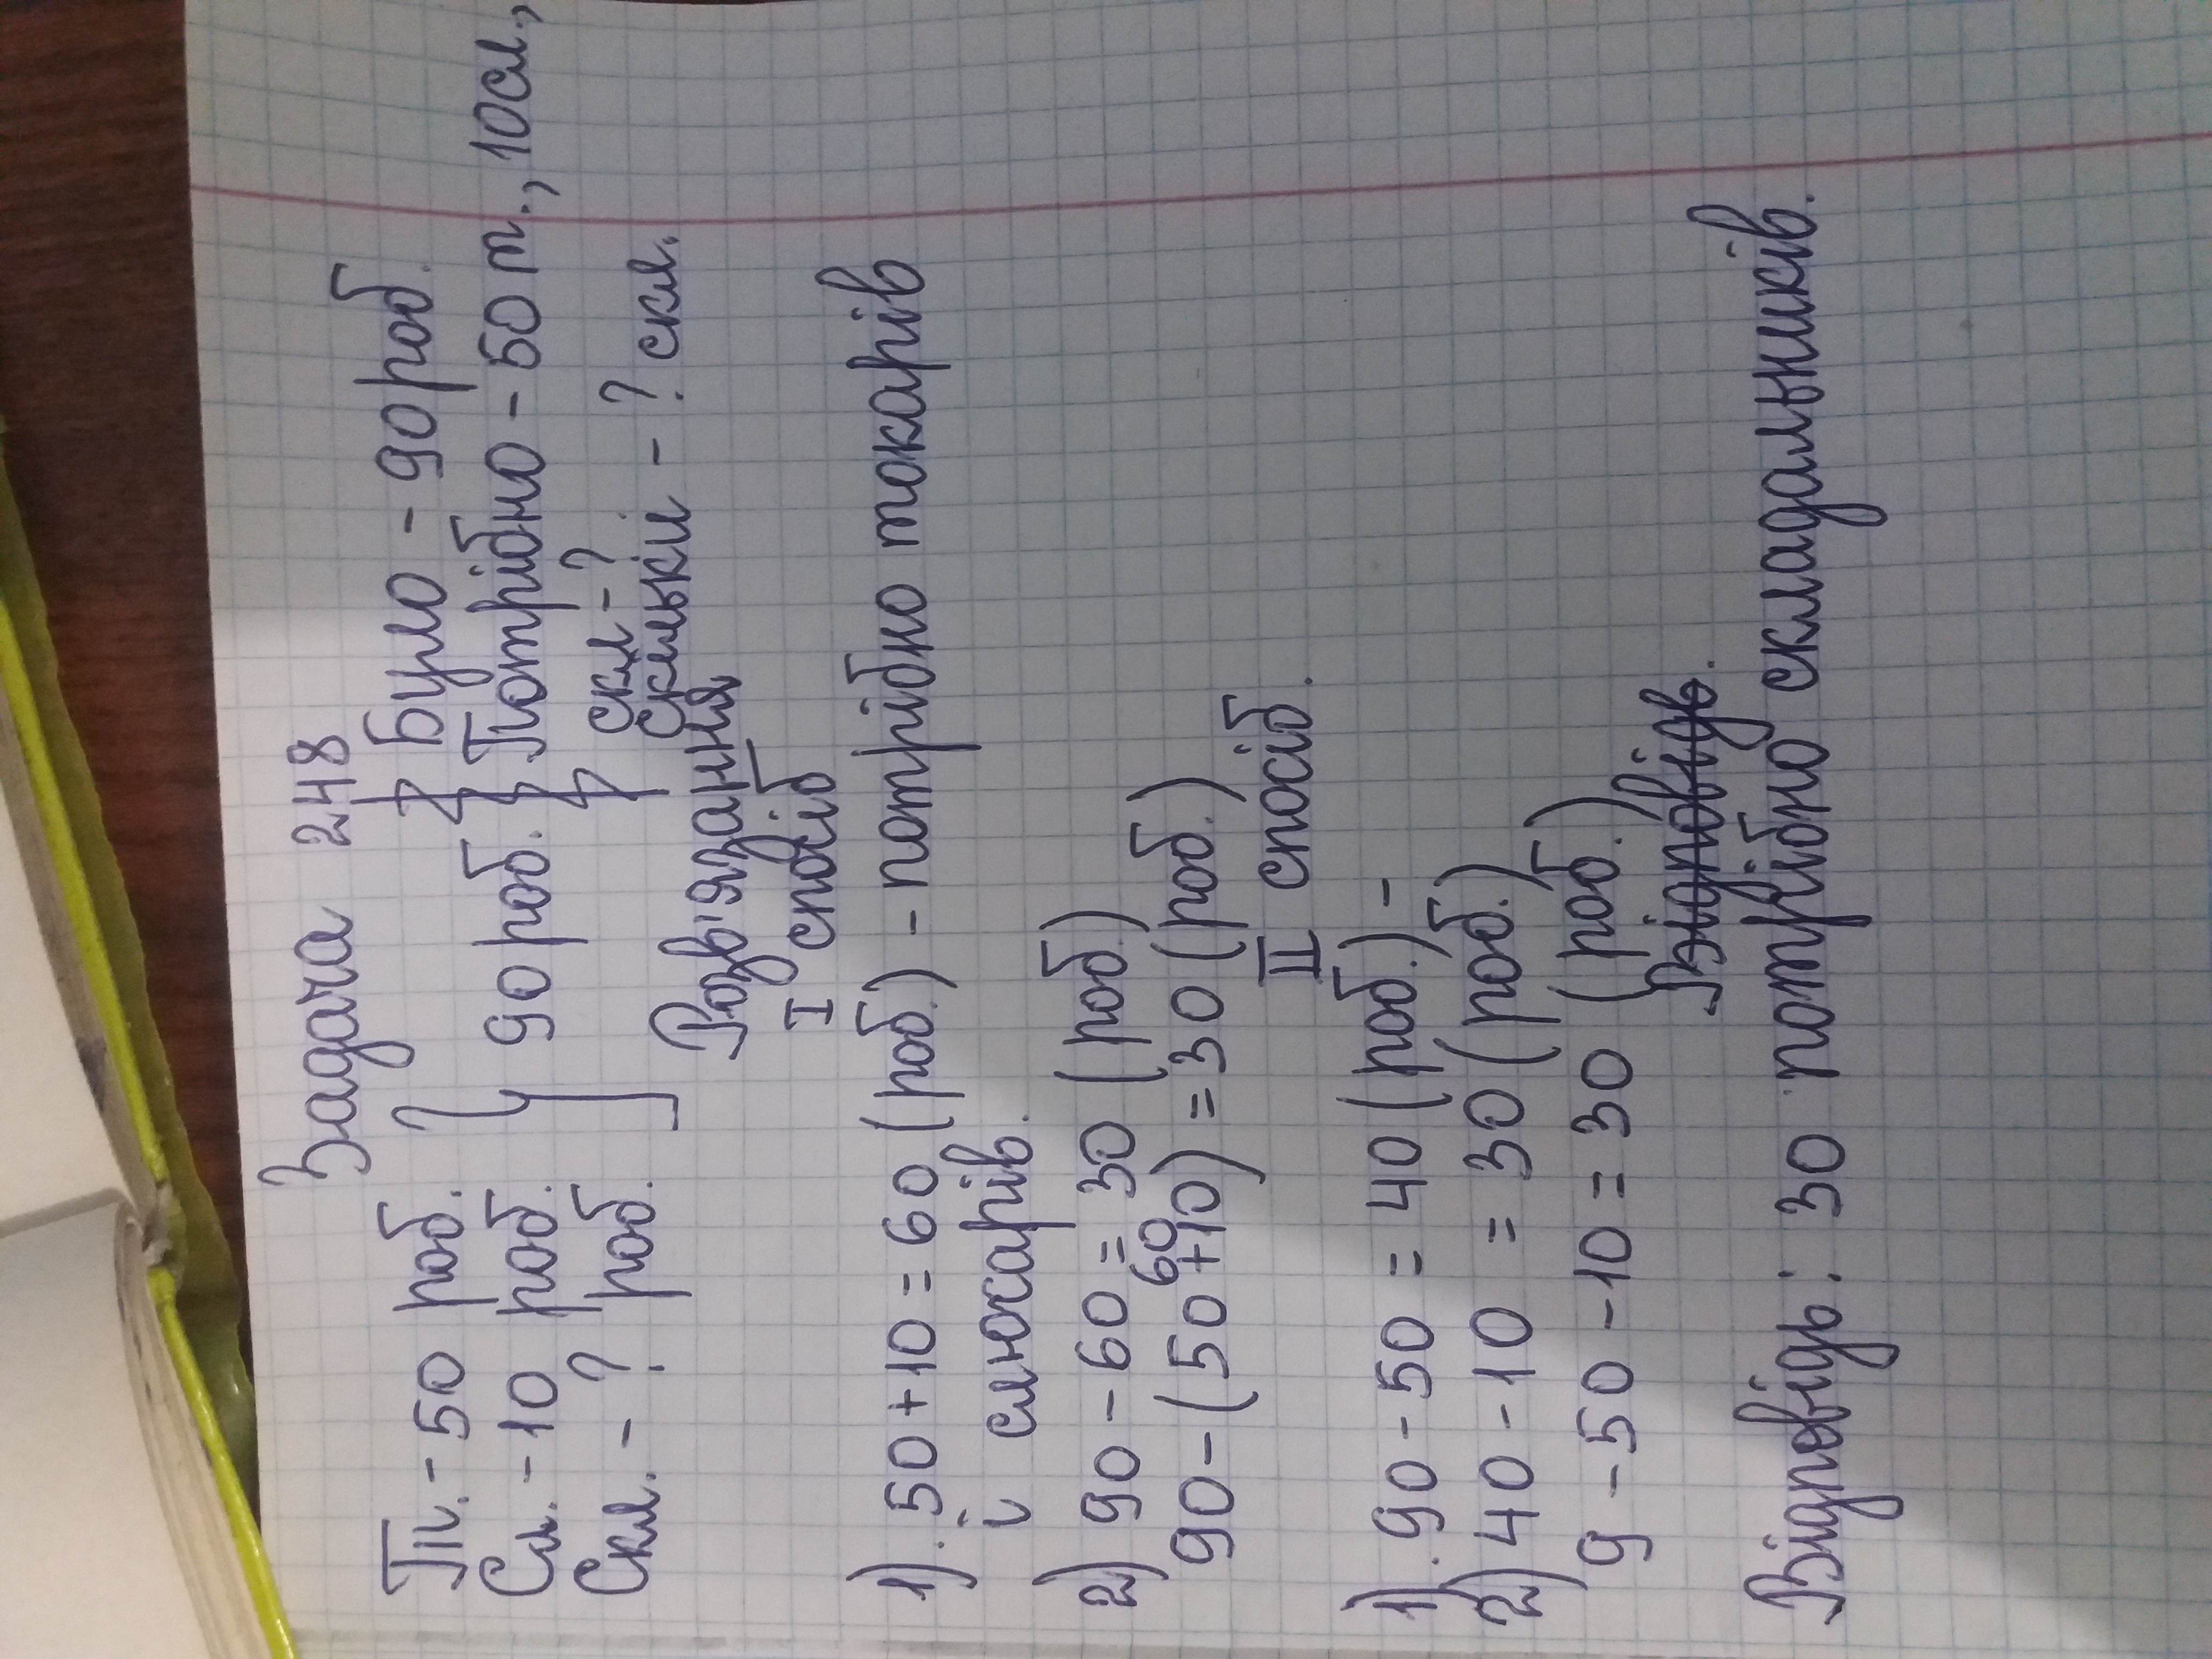 Задача 248
Т. - 50 роб.
Сл. - 10 роб.
Скл. - ? роб.
90 роб.
Було - 90 роб.
Потрібно - 50 т., 10 сл.,
скл - ?
Скільки - ? скл.
Розв'язання
I спосіб
1). 50 + 10 = 60 (роб.) - потрібно токарів
і слюсарів.
2) 90 - 60 = 30 (роб.)
60
90 - (50 + 10) = 30 (роб.)
II спосіб.
1). 90 - 50 = 40 (роб.) -
2) 40 - 10 = 30 (роб.)
9 - 50 - 10 = 30 (роб.)
Відповідь.
Відповідь: 30 потрібно складальників.